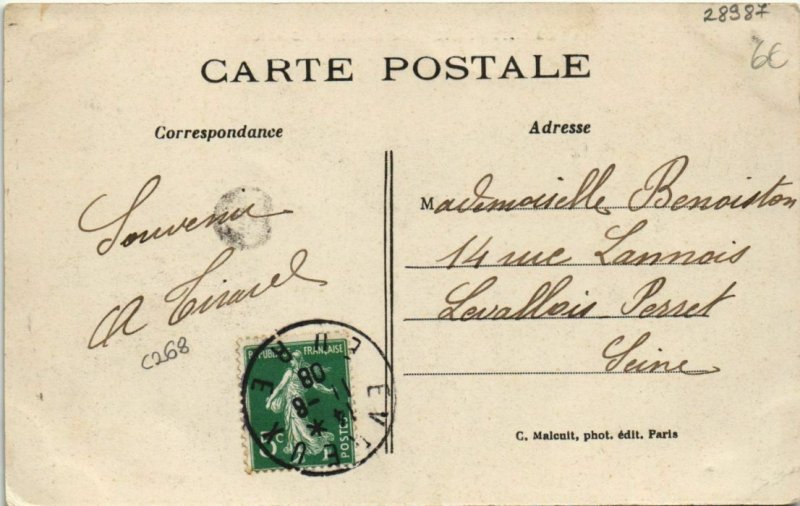 28987
6€
CARTE POSTALE
Correspondance
Adresse
Souvenir
A
C268
Mademoiselle Benoiston
14 rue Lannois
Levallois Perret
Seine
REPUBLIQUE FRANÇAISE
5c
POSTES
EVREUX
EURE
08
C. Malcuit, phot. édit. Paris